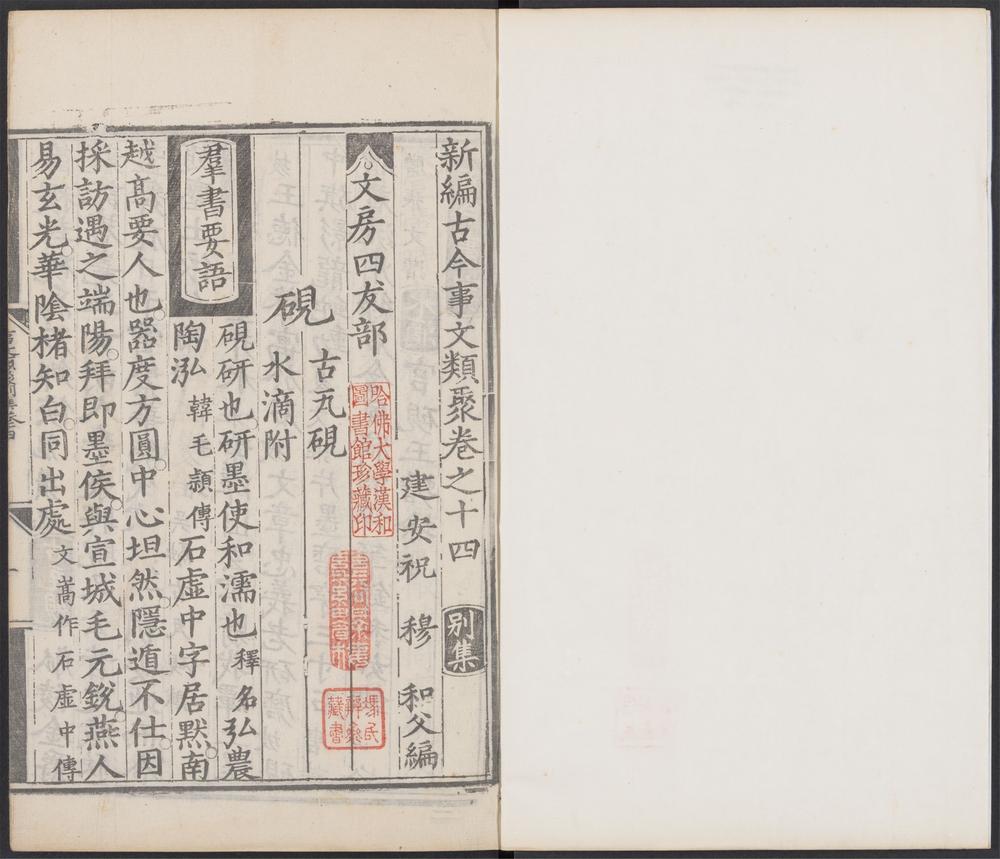 新編古今事文類聚卷之十四 别集
建安祝 穆 和父編
文房四友部
古瓦硯
硯
水滴附
羣書要語
硯研也研墨使和濡也釋名弘農
陶泓韓毛穎傳石虛中字居默南
越高要人也器度方圓中心坦然隱遁不仕因
採訪遇之端陽拜即墨侯與宣城毛元銳燕人
易玄光華陰楮知白同出處文嵩作石虛中傳
哈佛大學漢和
圖書館珍藏印